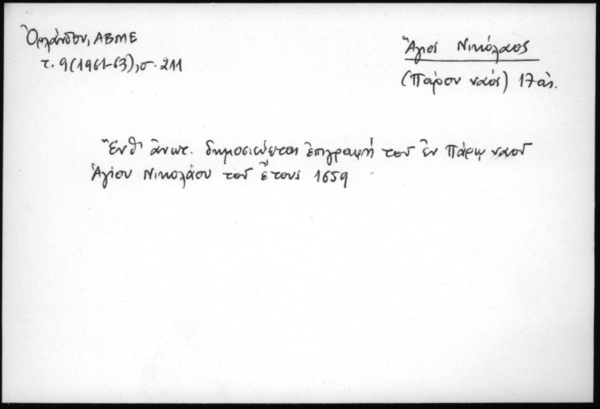 Ὀρλάνδου, ΑΒΜΕ
τ. 9 (1961-63), σ. 211
Ἅγιος Νικόλαος
(Πάρου ναός) 17 αἰ.
Ἔνθ' ἀνωτ. δημοσιεύεται ἐπιγραφή τοῦ ἐν Πάρῳ ναοῦ
Ἁγίου Νικολάου τοῦ ἔτους 1659